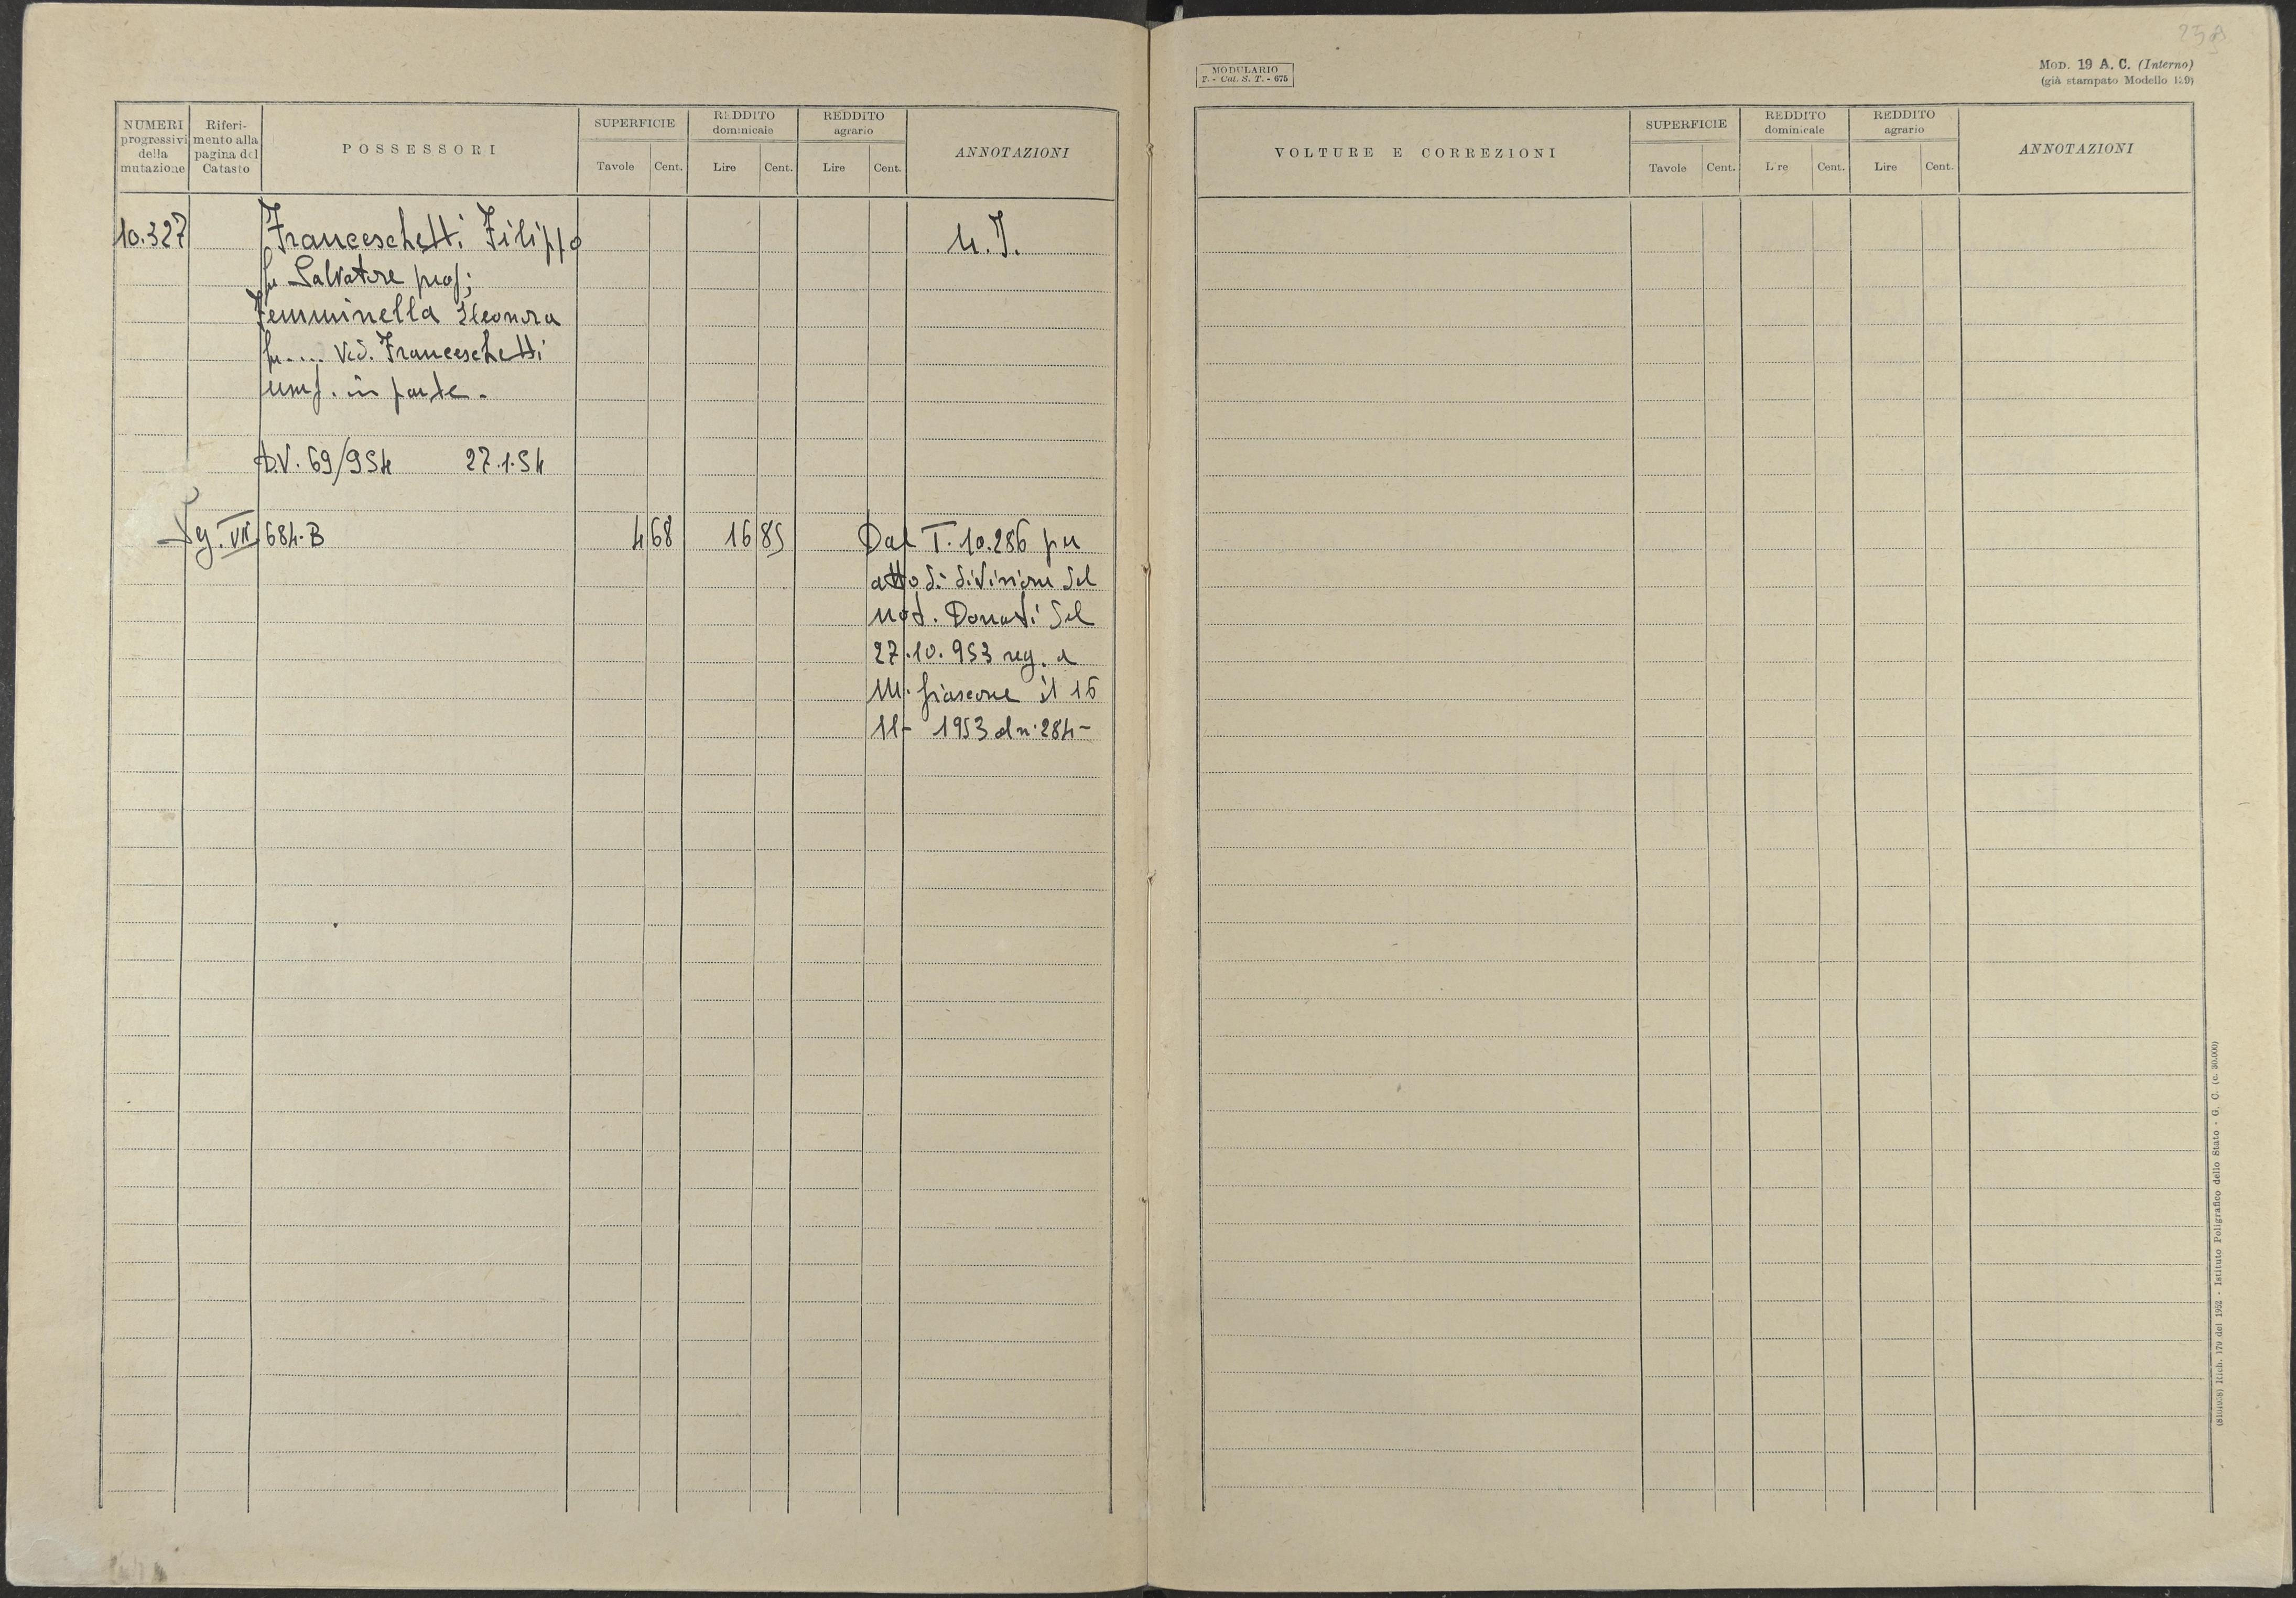 NUMERI progressivi della mutazione
Riferimento alla pagina del Catasto
POSSESSORI
SUPERFICIE
Tavole Cent.
REDDITO dominicale
Lire Cent.
REDDITO agrario
Lire Cent.
ANNOTAZIONI
10.327 Franceschetti Filippo
fu Salvatore prop;
Femminella Eleonora
fu .... Ved. Franceschetti
usuf. in parte.
D.V. 69/954 27.1.54
VII 684.B 4 68 16 85
Dal T. 10.286 per
atto di divisione del
not. Donati del
27.10.953 reg. a
M. fiascone il 16
11- 1953 al n. 284-
MODULARIO
F. - Cat. S. T. - 675
MOD. 19 A. C. (Interno)
(già stampato Modello 129)
VOLTURE E CORREZIONI
SUPERFICIE
Tavole Cent.
REDDITO dominicale
L re Cent.
REDDITO agrario
Lire Cent.
ANNOTAZIONI
Rich. 179 del 1952 - Istituto Poligrafico dello Stato - G. C. (c. 30.000)